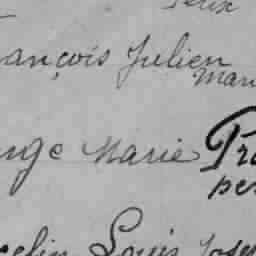 ançois Julien
Mari
nge Marie Pr
per
celin Louis Jose